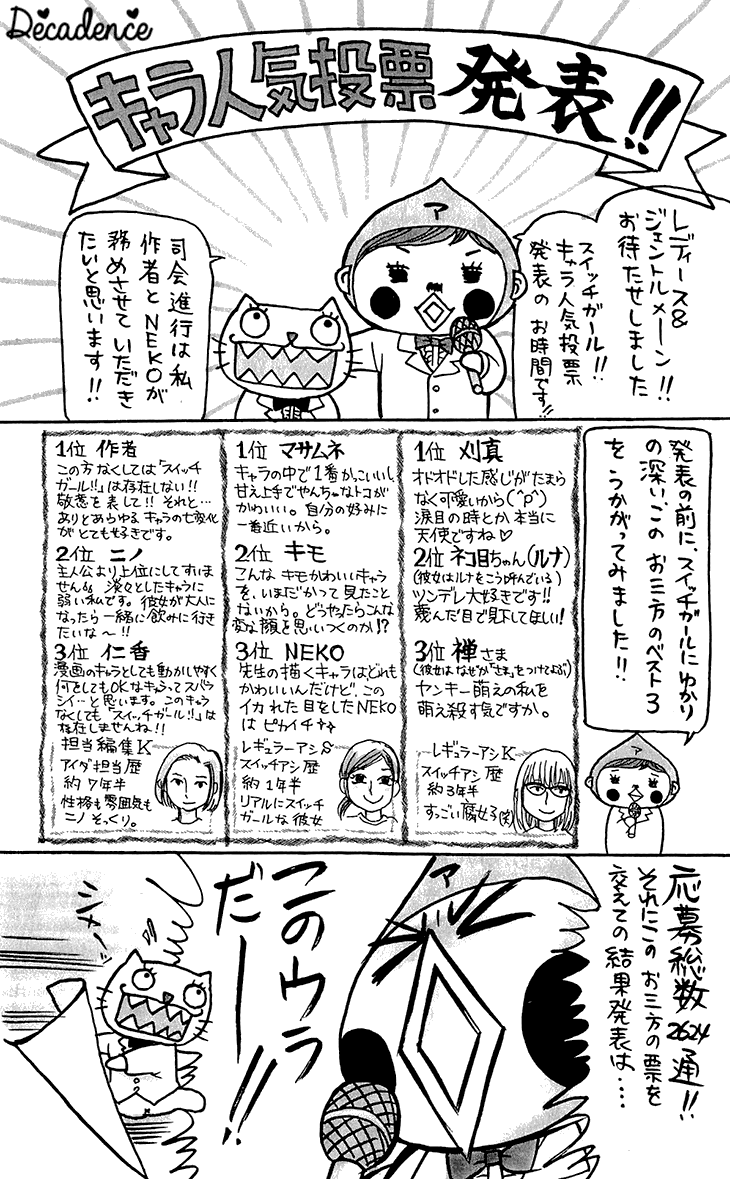 Decadence
キャラ人気投票 発表!!
レディース&
ジェントルメーン!!
お待たせしました
スイッチガール!!
キャラ人気投票
発表の お時間です!!
司会進行は私
作者とNEKOが
務めさせていただき
たいと思います!!
発表の前に、スイッチガールにゆかり
の深いこの お三方のベスト3
を うかがってみました!!
1位 刈真
オドオドした感じがたまら
なく可愛いから(^p^)
涙目の時とか、本当に
天使ですね♡
2位 ネコ目ちゃん(ルナ)
(彼女はルナをこう呼んでいる)
ツンデレ大好きです!!
蔑んだ目で見下してほしい!
3位 禅さま
(彼女はなぜか「さま」をつけてよぶ)
ヤンキー萌えの私を
萌え殺す気ですか。
レギュラーアシK
スイッチアシ歴
約3年半
すっごい腐女子(笑)
1位 マサムネ
キャラの中で1番かっこいいし、
甘え上手でやんちゃなトコが
かわいい。自分の好みに
一番近いから。
2位 キモ
こんな キモかわいいキャラ
を、いまだかって見たこと
ないから。どうやったらこんな
変な顔を思いつくのか!?
3位 NEKO
先生の描くキャラはどれも
かわいいんだけど、この
イカれた目をしたNEKO
は ピカイチ✧✧
レギュラーアシS
スイッチアシ歴
約1年半
リアルにスイッチ
ガールな彼女
1位 作者
この方なくしては「スイッチ
ガール!!」は存在しない!!
敬意を表して!! それと…
ありとあらゆる キャラの七変化
がとても好きです。
2位 ニノ
主人公より上位にしてすいま
せん💦 淡々としたキャラに
弱い私です。彼女が大人に
なったら一緒に飲みに行き
たいな〜!!
3位 仁香
漫画のキャラとしても動かしやすく
何をしてもOKなキャラってスバラ
シイ…と思います。このキャラ
なくしても「スイッチガール!!」は
存在しませんね!!
担当編集K
アイダ担当歴
約7年半
性格も雰囲気も
ニノ そっくり。
応募総数2624通!!
それにこの お三方の票を
交えての 結果発表は‥‥
このウラ
だーー!!